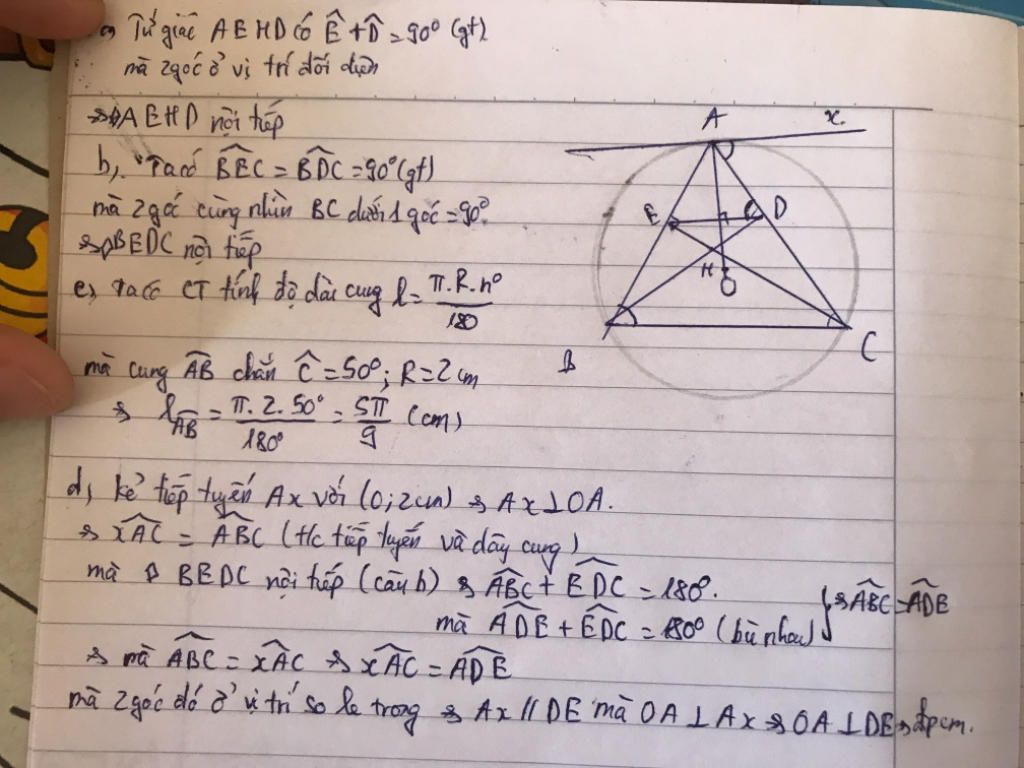 a) Tứ giác AEHD có Ê + D̂ = 90° (gt)
mà 2 góc ở vị trí đối diện
⇒ AEHD nội tiếp
b, Ta có BEC = BDC = 90° (gt)
mà 2 góc cùng nhìn BC dưới 1 góc = 90°.
⇒ BEDC nội tiếp
c, Ta có CT tính độ dài cung l = π.R.n° / 180
mà cung AB chắn Ĉ = 50°; R = 2 cm
⇒ l AB = π.2.50° / 180° = 5π / 9 (cm)
d, kẻ tiếp tuyến Ax với (O; 2cm) ⇒ Ax ⊥ OA.
⇒ xAC = ABC (t/c tiếp tuyến và dây cung)
mà BEDC nội tiếp (câu b) ⇒ ABC + EDC = 180°.
mà ADE + EDC = 180° (bù nhau) } ⇒ ABC = ADE
⇒ mà ABC = xAC ⇒ xAC = ADE
mà 2 góc đó ở vị trí so le trong ⇒ Ax // DE mà OA ⊥ Ax ⇒ OA ⊥ DE ⇒ đpcm.
A x
E D
H
O
B C